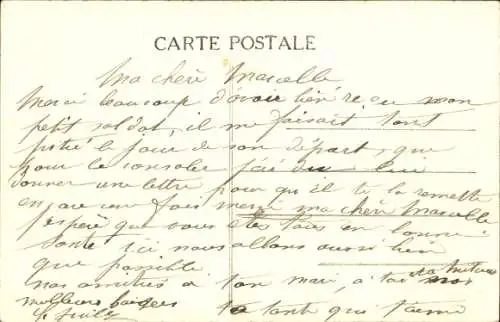 CARTE POSTALE
Ma chère Marcelle
Merci beaucoup d'avoir bien reçu mon
petit soldat, il me faisait tant
pitié le jour de son départ, que
pour le consoler j'ai du lui
donner une lettre pour qu'il te la remette
encore une fois merci ma chère Marcelle
j'espère que vous êtes tous en bonne
santé ici nous allons aussi bien
que possible
nos amitiés à ton mari, à toi nos
meilleurs baisers
ta tante qui t'aime